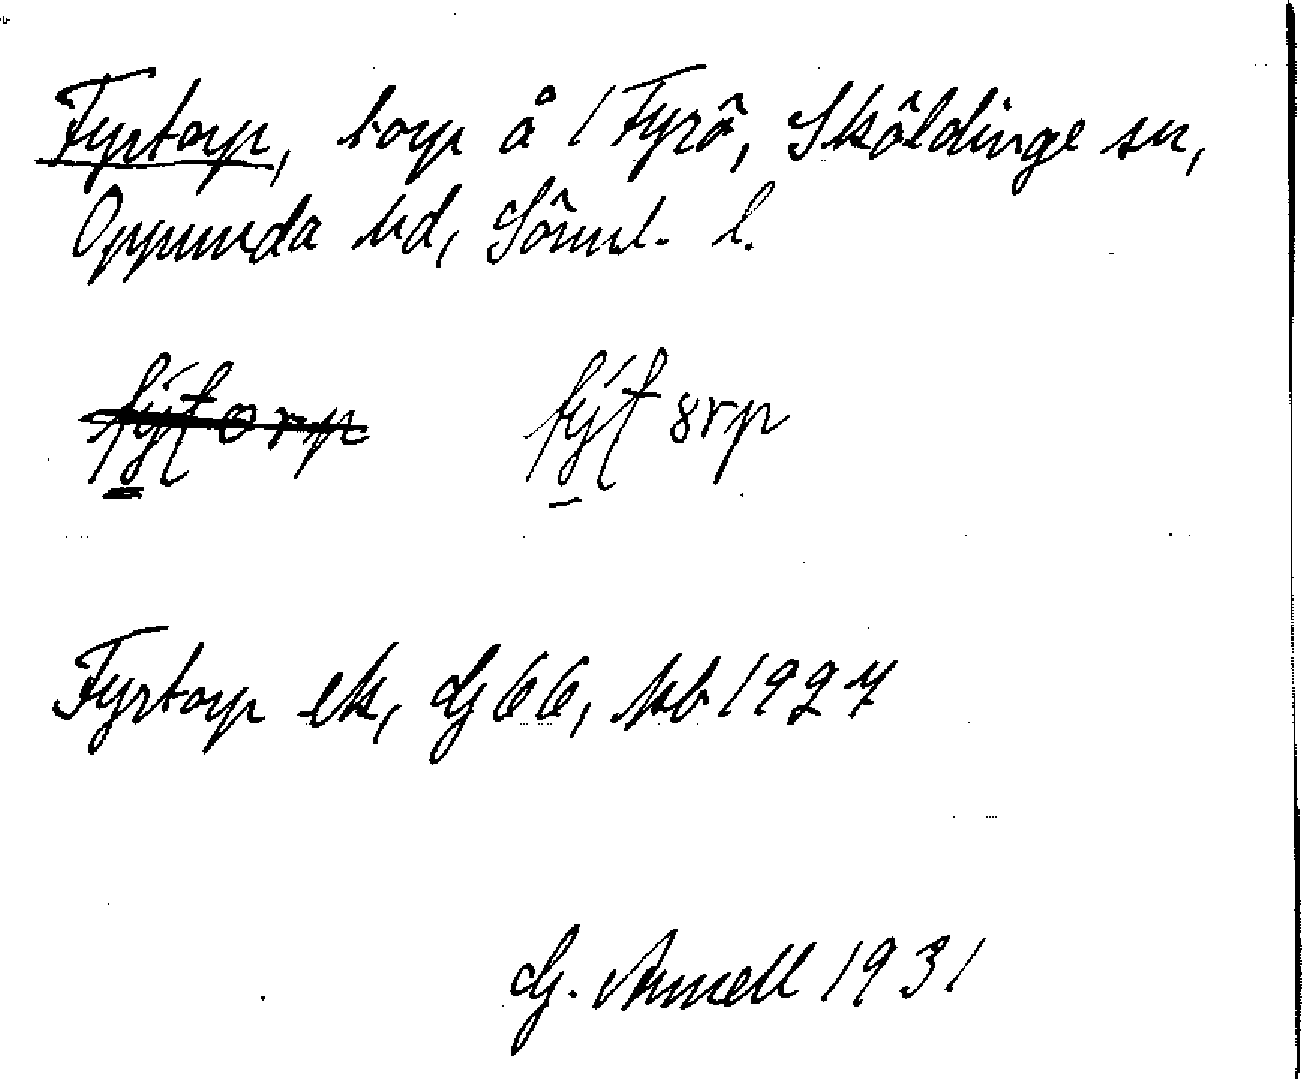 Fyrtorp, torp å 1 Fyrö, Sköldinge sn,
Oppunda hd, Söml. l.
Fyrtorp ek, Gj 66, hb 1927
G. Annell 1931